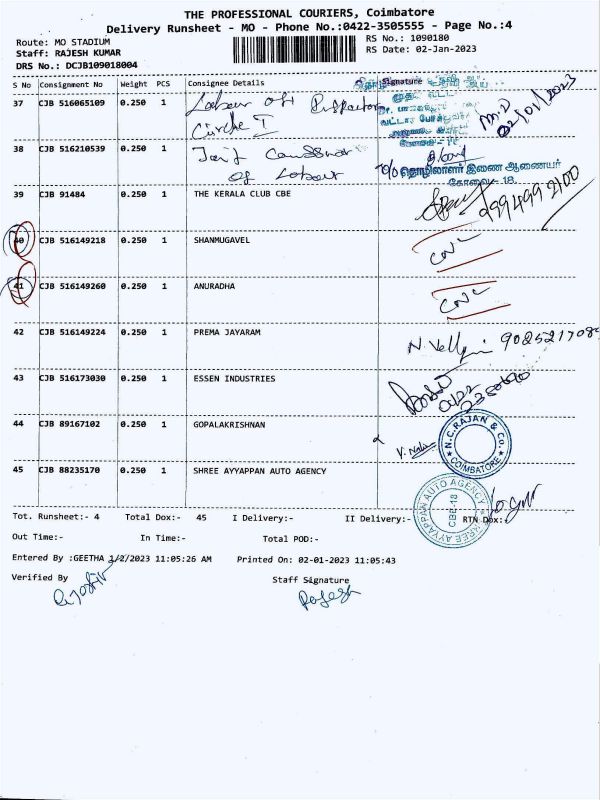 THE PROFESSIONAL COURIERS, Coimbatore
Delivery Runsheet - MO - Phone No.:0422-3505555 - Page No.:4
Route: MO STADIUM
Staff: RAJESH KUMAR
DRS No.: DCJB109018004
RS No.: 1090180
RS Date: 02-Jan-2023
S No Consignment No Weight PCS Consignee Details Signature
37 CJB 516065109 0.250 1 Labour Off
Circle I
02/01/2023
38 CJB 516210539 0.250 1
Of Labour
தொழிலாளர் இணை ஆணையர்
கோவை - 18.
39 CJB 91484 0.250 1 THE KERALA CLUB CBE 9994992100
40 CJB 516149218 0.250 1 SHANMUGAVEL CNC
41 CJB 516149260 0.250 1 ANURADHA CNC
42 CJB 516149224 0.250 1 PREMA JAYARAM
43 CJB 516173030 0.250 1 ESSEN INDUSTRIES 0422
44 CJB 89167102 0.250 1 GOPALAKRISHNAN
N.C.RAJAN & Co. COIMBATORE
45 CJB 88235170 0.250 1 SHREE AYYAPPAN AUTO AGENCY
SHREE AYYAPPAN AUTO AGENCY CBE-18
Tot. Runsheet:- 4 Total Dox:- 45 I Delivery:- II Delivery:- RTN Dox:-
Out Time:- In Time:- Total POD:-
Entered By :GEETHA 1/2/2023 11:05:26 AM Printed On: 02-01-2023 11:05:43
Verified By Staff Signature
Rajesh